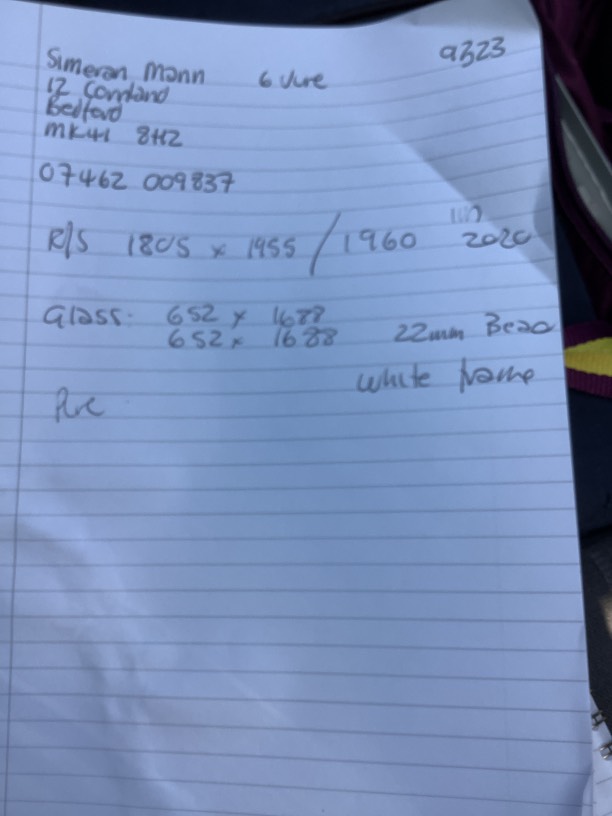 Simeran Mann 6 Jure 9323
12 Comland
Bedford
MK41 8HZ
07462 009837
R/S 1805 x 1955 / 1960 2020
Glass: 652 x 1688
652 x 1688 22mm Bead
White frame